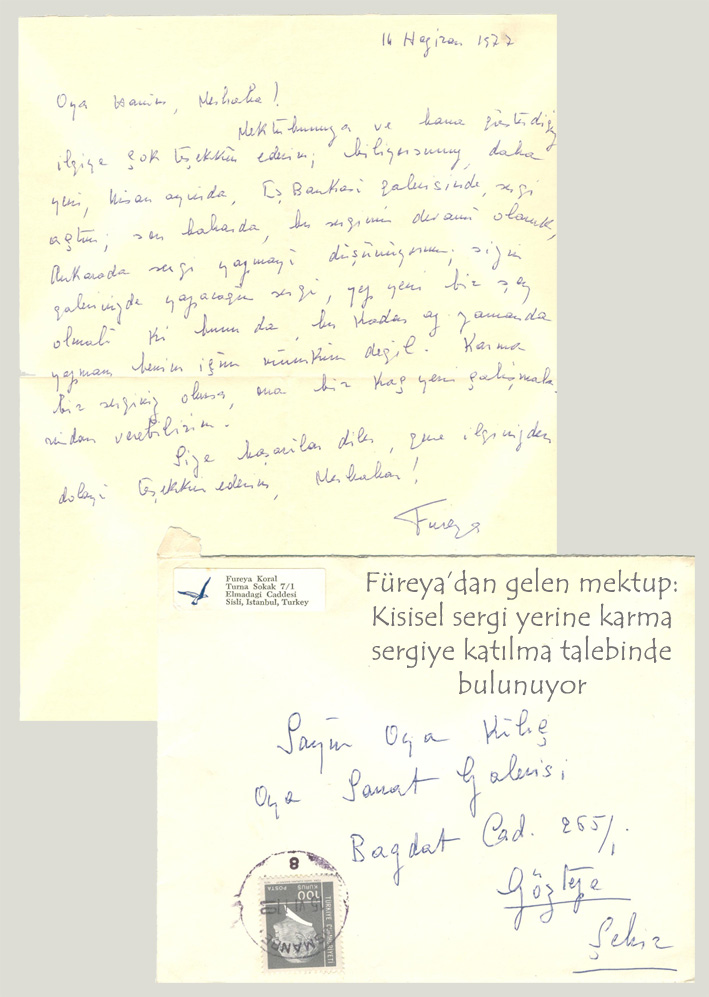 14 Haziran 1977
Oya Hanım, Merhaba!
Mektubunuza ve bana gösterdiğiniz
ilgiye çok teşekkür ederim; biliyorsunuz, daha
yeni, Nisan ayında, İş Bankası galerisinde, sergi
açtım; son baharda, bu serginin devamı olarak,
Ankarada sergi yapmayı düşünüyorum; sizin
galerinizde yapacağım sergi, yep yeni bir şey
olmalı ki bunu da, bu kadar az zamanda
yapmam benim için mümkün değil. Karma
bir serginiz olursa, ona bir kaç yeni çalışmala-
rımdan verebilirim.
Size başarılar diler, gene ilginizden
dolayı teşekkür ederim, Merhabar!
Fureya
Fureya Koral
Turna Sokak 7/1
Elmadagi Caddesi
Sisli, Istanbul, Turkey
Füreya'dan gelen mektup:
Kisisel sergi yerine karma
sergiye katılma talebinde
bulunuyor
Sayın Oya Kılıç
Oya Sanat Galerisi
Bagdat Cad. 265/1
Göztepe
Şehir
8
100
KURUS
POSTA
TÜRKİYE CUMHURİYETİ